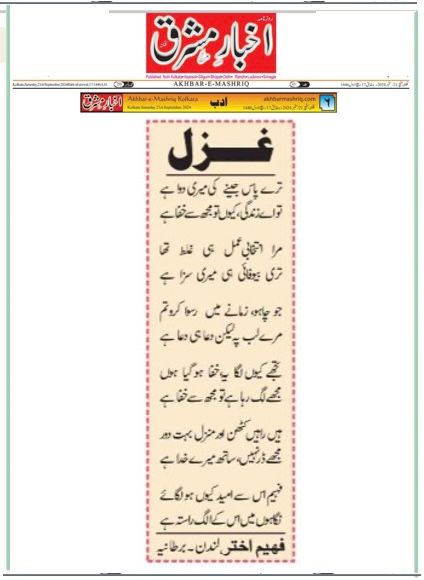 روزنامہ
اخبار مشرق
AKHBAR-E-MASHRIQ
اخبار مشرق
Akhbar-e-Mashriq Kolkata
Kolkata Saturday, 21st September, 2024
ادب
akhbarmashriq.com
۶
غزل
ترے پاس جینے کی میری دوا ہے
تو اے زندگی، کیوں تو مجھ سے خفا ہے
مرا انتخابی عمل ہی غلط تھا
تری بیوفائی ہی میری سزا ہے
جو چاہو، زمانے میں رسوا کرو تم
مرے لب پہ لیکن دعا ہی دعا ہے
تجھے کیوں لگا یہ خفا ہو گیا ہوں
مجھے لگ رہا ہے تو مجھ سے خفا ہے
ہیں راہیں کٹھن اور منزل بہت دور
مجھے ڈر نہیں، ساتھ میرے خدا ہے
فہیم اس سے امید کیوں ہو لگائے
نگاہوں میں اس کے الگ راستہ ہے
فہیم اختر، لندن۔ برطانیہ